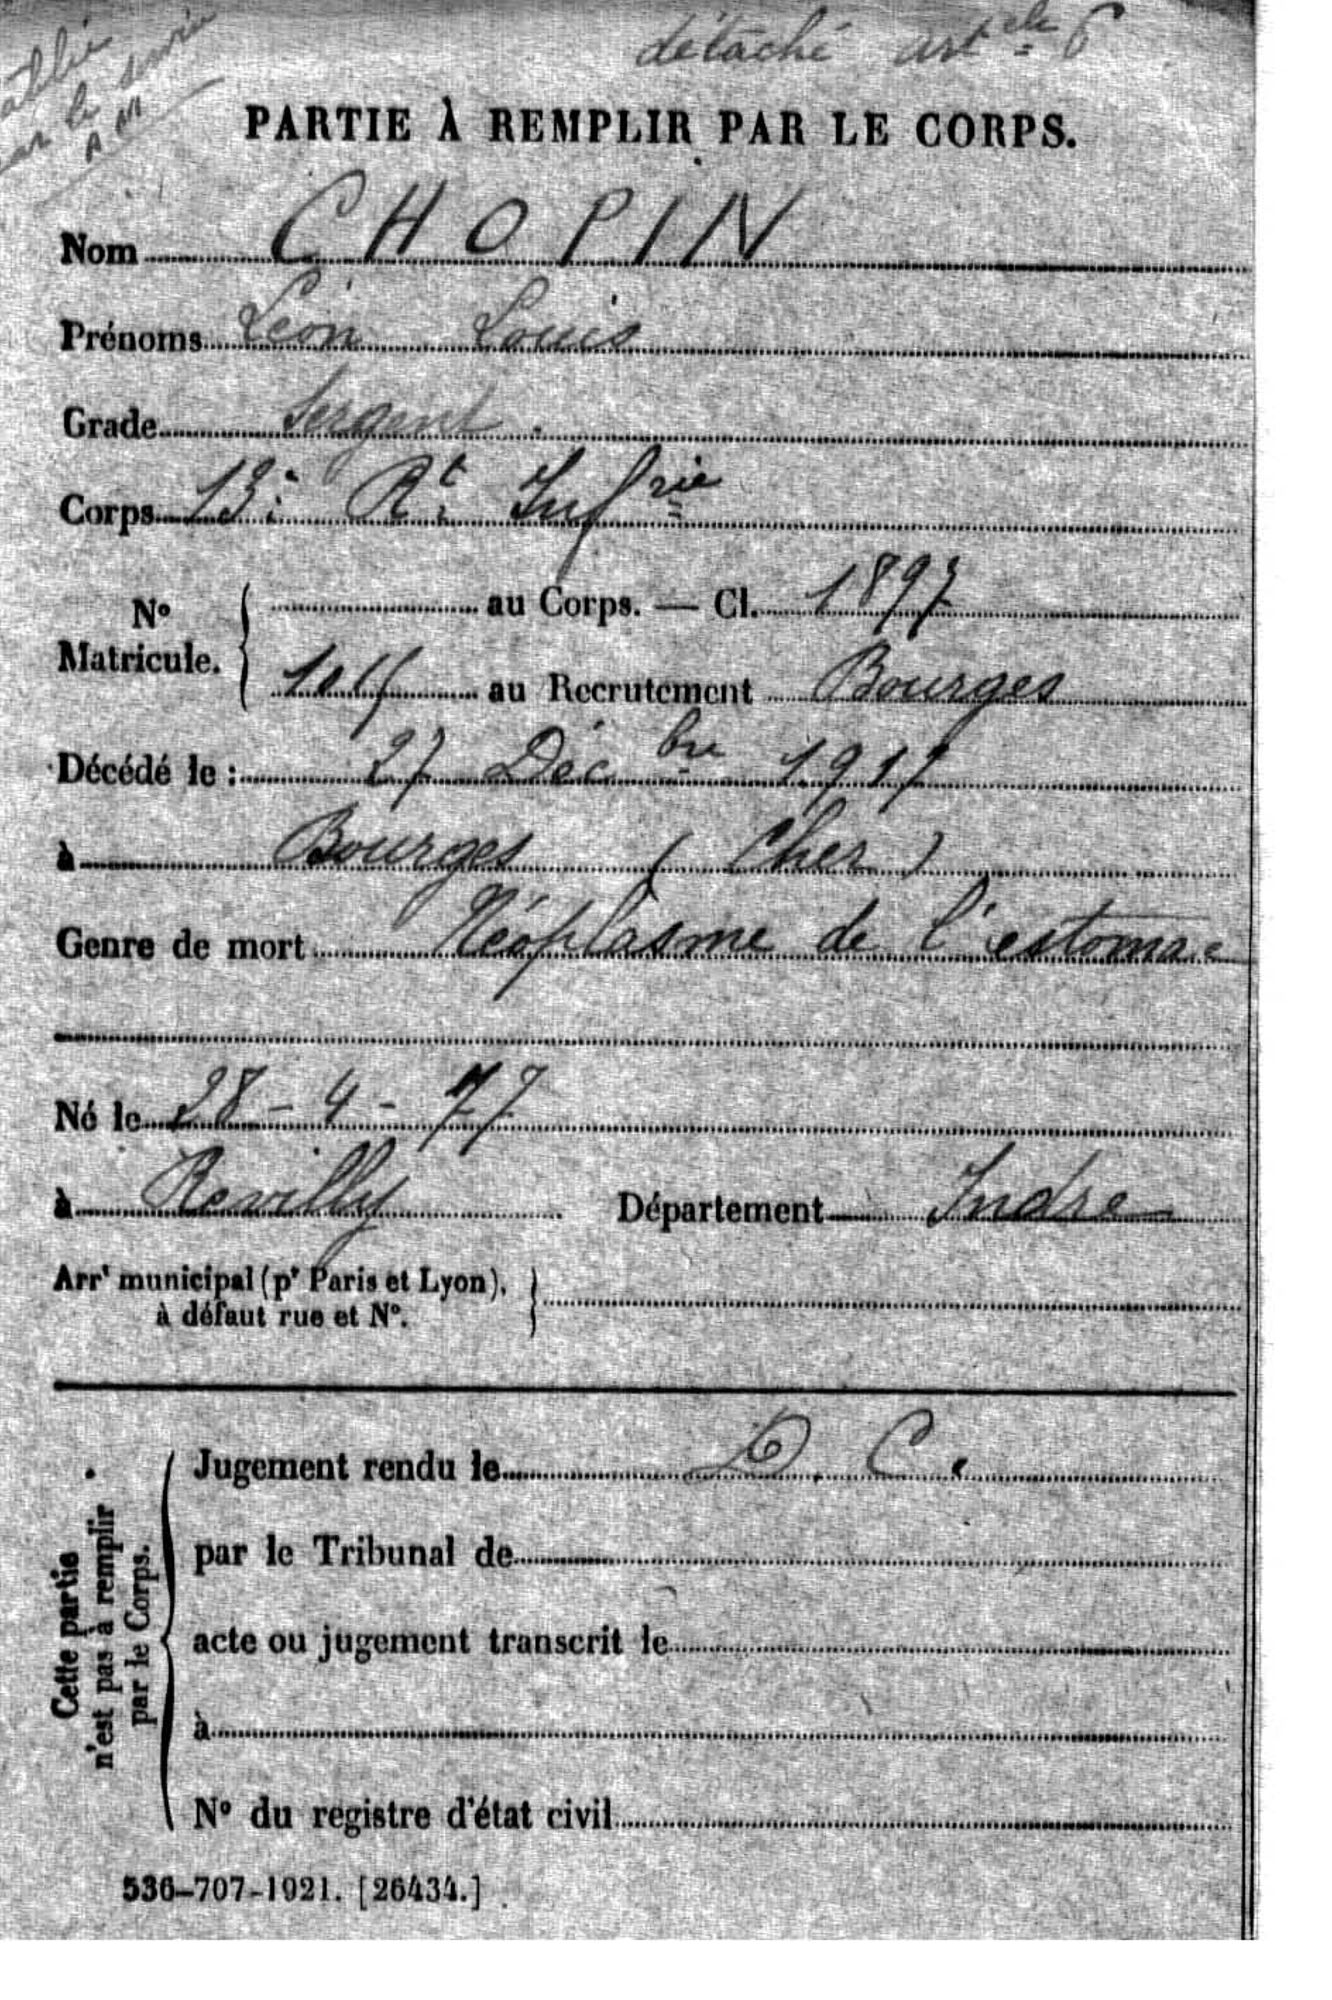 détaché art cle 6
établie
par le service
A M
PARTIE À REMPLIR PAR LE CORPS.
Nom CHOPIN
Prénoms Léon Louis
Grade Sergent.
Corps 13e Rt Infrie
No Matricule. { au Corps. — Cl. 1897
1015 au Recrutement Bourges
Décédé le : 27 Décbre 1917
à Bourges (Cher)
Genre de mort Néoplasme de l'estomac
Né le 28-4-77
à Reuilly Département Indre
Arrt municipal (pr Paris et Lyon),
à défaut rue et No. }
Cette partie
n'est pas à remplir
par le Corps.
Jugement rendu le D. C.
par le Tribunal de
acte ou jugement transcrit le
à
No du registre d'état civil
536-707-1921. [26434.]